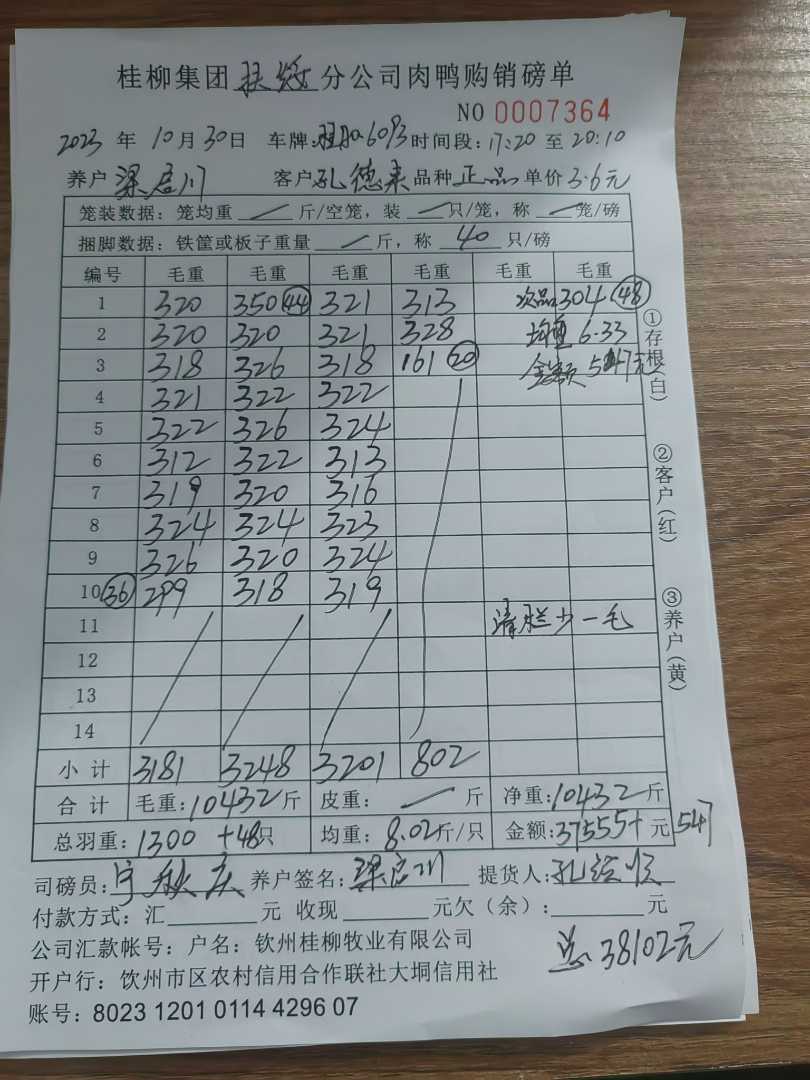 桂柳集团 扶绥 分公司肉鸭购销磅单
NO 0007364
2023 年 10 月 30 日 车牌: 6093 时间段: 17:20 至 20:10
养户 梁启川 客户 孔德来 品种 正品 单价 3.6 元
笼装数据: 笼均重 — 斤/空笼, 装 — 只/笼, 称 — 笼/磅
捆脚数据: 铁筐或板子重量 — 斤, 称 40 只/磅
编号 毛重 毛重 毛重 毛重 毛重 毛重
1 320 350 (44) 321 313 次品: 304 (48)
2 320 320 321 328 均重 6.33
3 318 326 318 161 (20) 金额 547元
4 321 322 322
5 322 326 324
6 312 322 313
7 319 320 316
8 324 324 323
9 326 320 324
10 (36) 299 318 319
11 清栏少一毛
12
13
14
小计 3181 3248 3201 802
合计 毛重: 10432 斤 皮重: — 斤 净重: 10432 斤
总羽重: 1300 +48 只 均重: 8.02 斤/只 金额: 37555+ 元 547
司磅员: 养户签名: 梁启川 提货人:
付款方式: 汇______元 收现______元欠(余): ______元
公司汇款帐号: 户名: 钦州桂柳牧业有限公司
总 38102元
开户行: 饮州市区农村信用合作联社大垌信用社
账号: 8023 1201 0114 4296 07
①存根(白)
②客户(红)
③养户(黄)